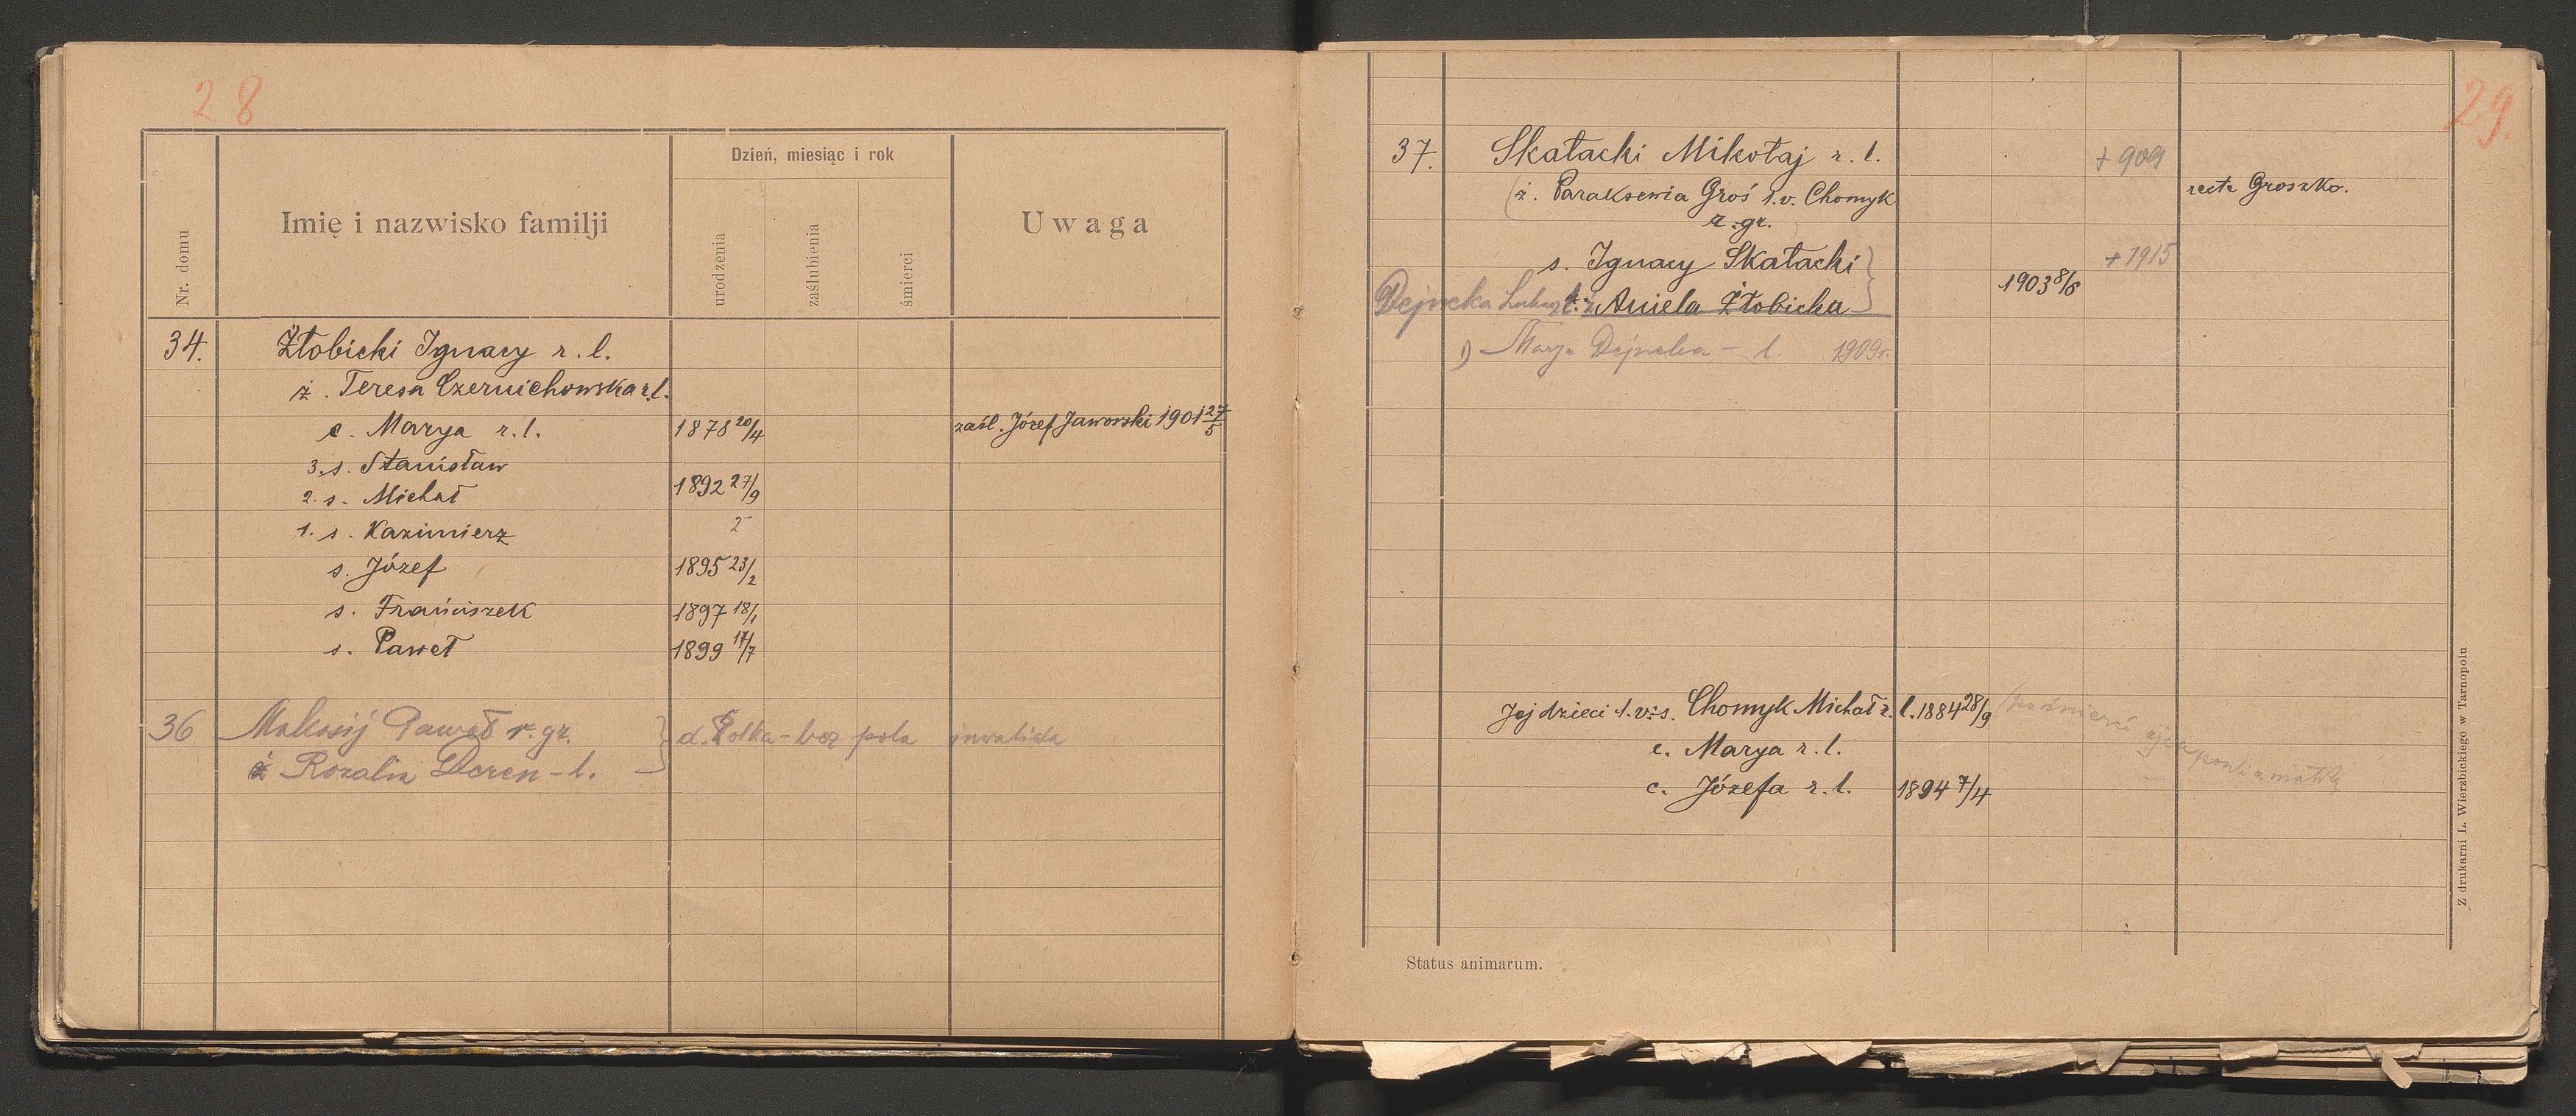 28
Nr. domu
Imię i nazwisko familji
Dzień, miesiąc i rok
urodzenia
zaślubienia
śmierci
Uwaga
34. Żłobicki Ignacy r. l.
ż. Teresa Czernichowska r. l.
c. Marya r. l. 1878 20/4 zaśl. Józef Jaworski 1901 27/5
3. s. Stanisław
2. s. Michał 1892 27/9
1. s. Kazimierz
s. Józef 1895 23/2
s. Franciszek 1897 18/1
s. Paweł 1899 17/7
36 Paweł r. gr. bez pola inwalida
ż Rozalia Deren - l.
29.
37. Skałacki Mikołaj r. l. + 909
(ż. Paraksewia Groś 1. v. Chomyk recte Groszko.
r. gr.
s. Ignacy Skałacki + 1915
Dejneka ż Aniela Żłobicka 1903 8/6
1) Marya Dejneka - l. 1909 r.
Jej dzieci 1. v. s. Chomyk Michał r. l. 1884 28/9 po śmierci ojca poszli z matką
c. Marya r. l.
c. Józefa r. l. 1894 7/4
Status animarum.
Z drukarni L. Wierzbickiego w Tarnopolu